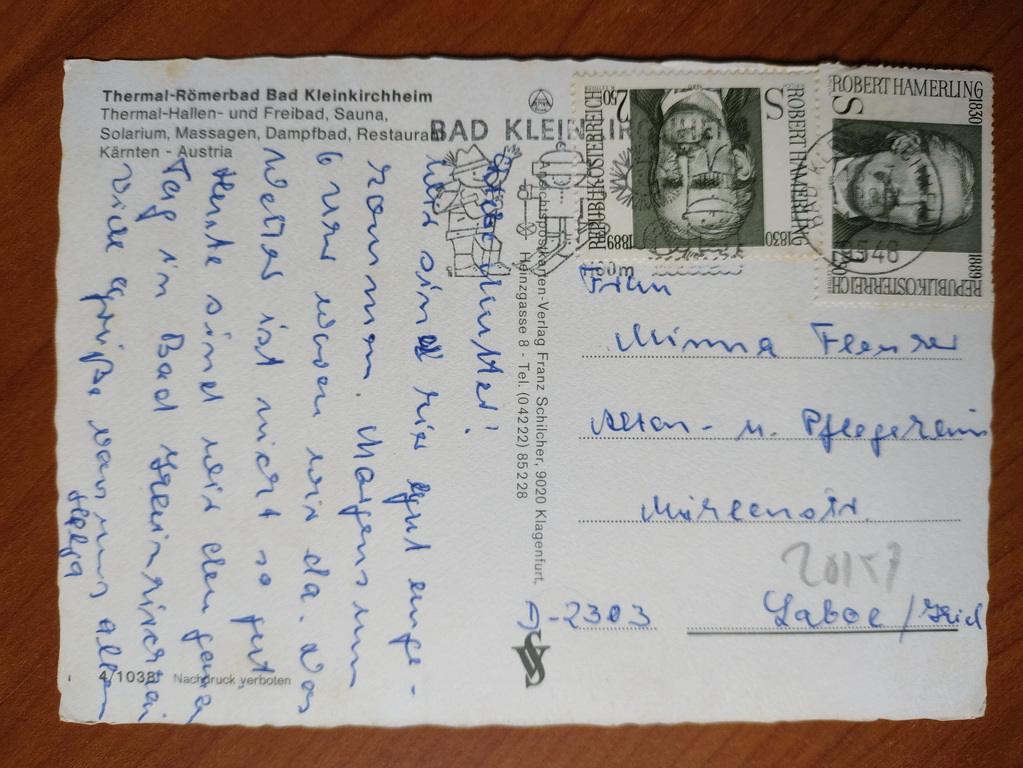 Thermal-Römerbad Bad Kleinkirchheim
Thermal-Hallen- und Freibad, Sauna,
Solarium, Massagen, Dampfbad, Restaurant
Kärnten - Austria
Liebe Mutter!
Wir sind hier gut ange-
kommen. Morgens um
6 Uhr waren wir da. Das
Wetter ist nicht so gut.
Heute sind wir den ganzen
Tag in Bad Kleinkirchheim
Viele Grüße von uns allen
Helga
4/1038 Nachdruck verboten
Ansichtspostkarten-Verlag Franz Schilcher, 9020 Klagenfurt,
Heinzgasse 8 - Tel. (04222) 85228
BAD KLEINKIRCHHEIM
1100m
2.50 S
REPUBLIK ÖSTERREICH
ROBERT HAMERLING
1830
1889
S
ROBERT HAMERLING
1830
1889
REPUBLIK ÖSTERREICH
9546
Frau
Minna
Alten- u. Pflegeheim
D-2303 Laboe/Kiel